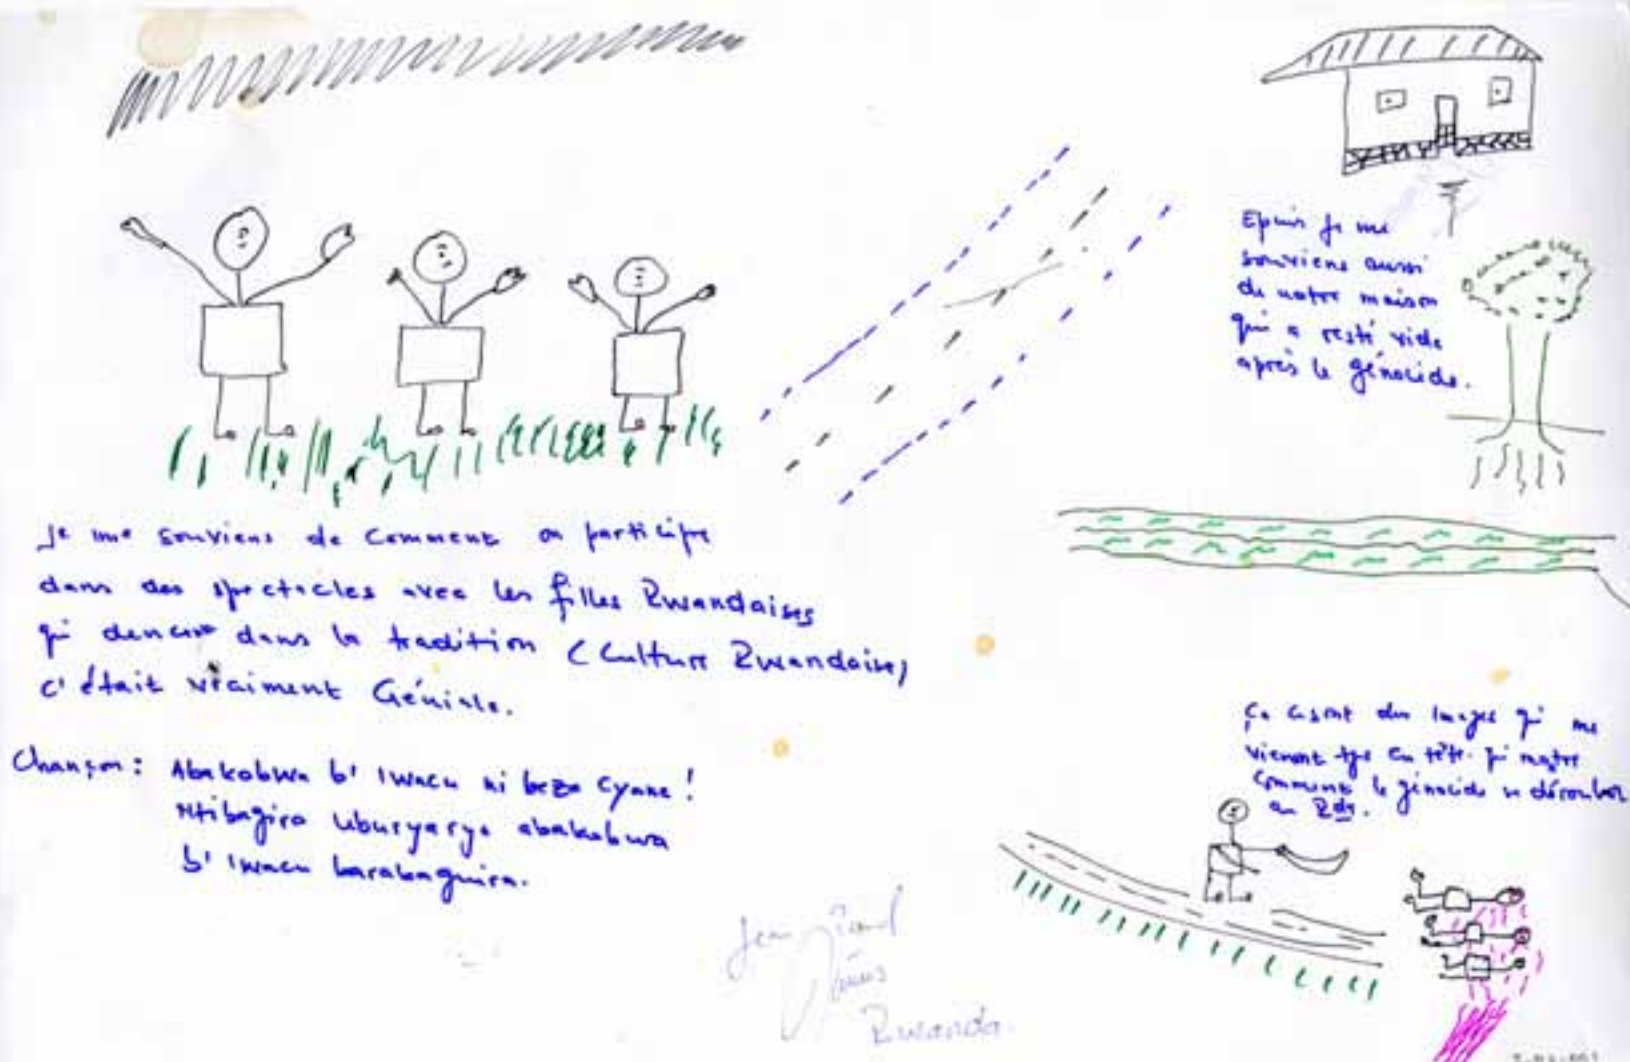 Je me souviens de comment on participe
dans des spectacles avec les filles Rwandaises
qui dansent dans la tradition (Culture Rwandaise)
c'était vraiment Géniale.
Chançon: Abakobwa b'iwacu ni beza cyane!
Ntibagira uburyarya abakobwa
b'iwacu barabaguira.
Epuis je me
souviens aussi
de notre maison
qui a resté vide
après le génocide.
Ça cesont des images qui me
viennent tjrs en tête qui montre
comment le génocide se dérouler
au Rda.
Jean
Rwanda